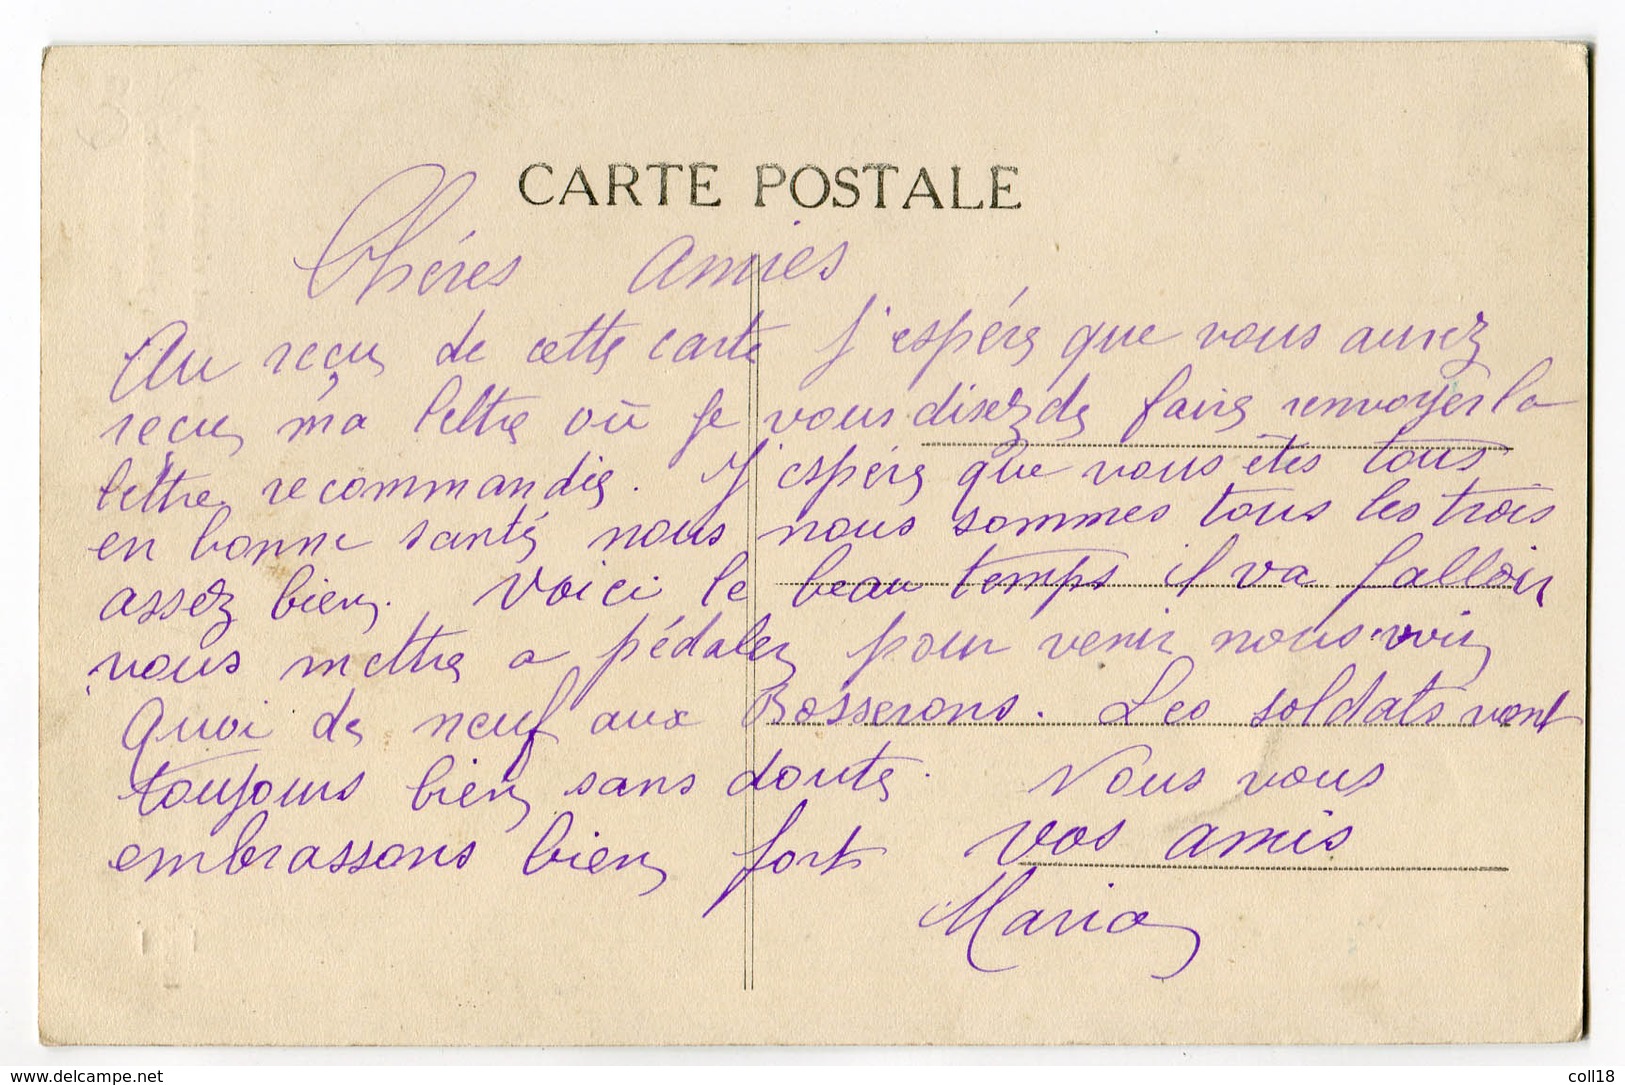 CARTE POSTALE
Chéres amies
Au reçu de cette carte J'espére que vous aurez
reçu ma lettre où je vous disez de faire renvoyer la
lettre recommandie. J'espére que vous êtes tous
en bonne santé nous nous sommes tous les trois
assez bien. Voici le beau temps il va falloir
vous mettre a pédaler pour venir nous voir
Quoi de neuf aux Bosserons. Les soldats vont
toujours bien sans doute. Nous vous
embrassons bien fort vos amis
Maria
www.delcampe.net
coll18